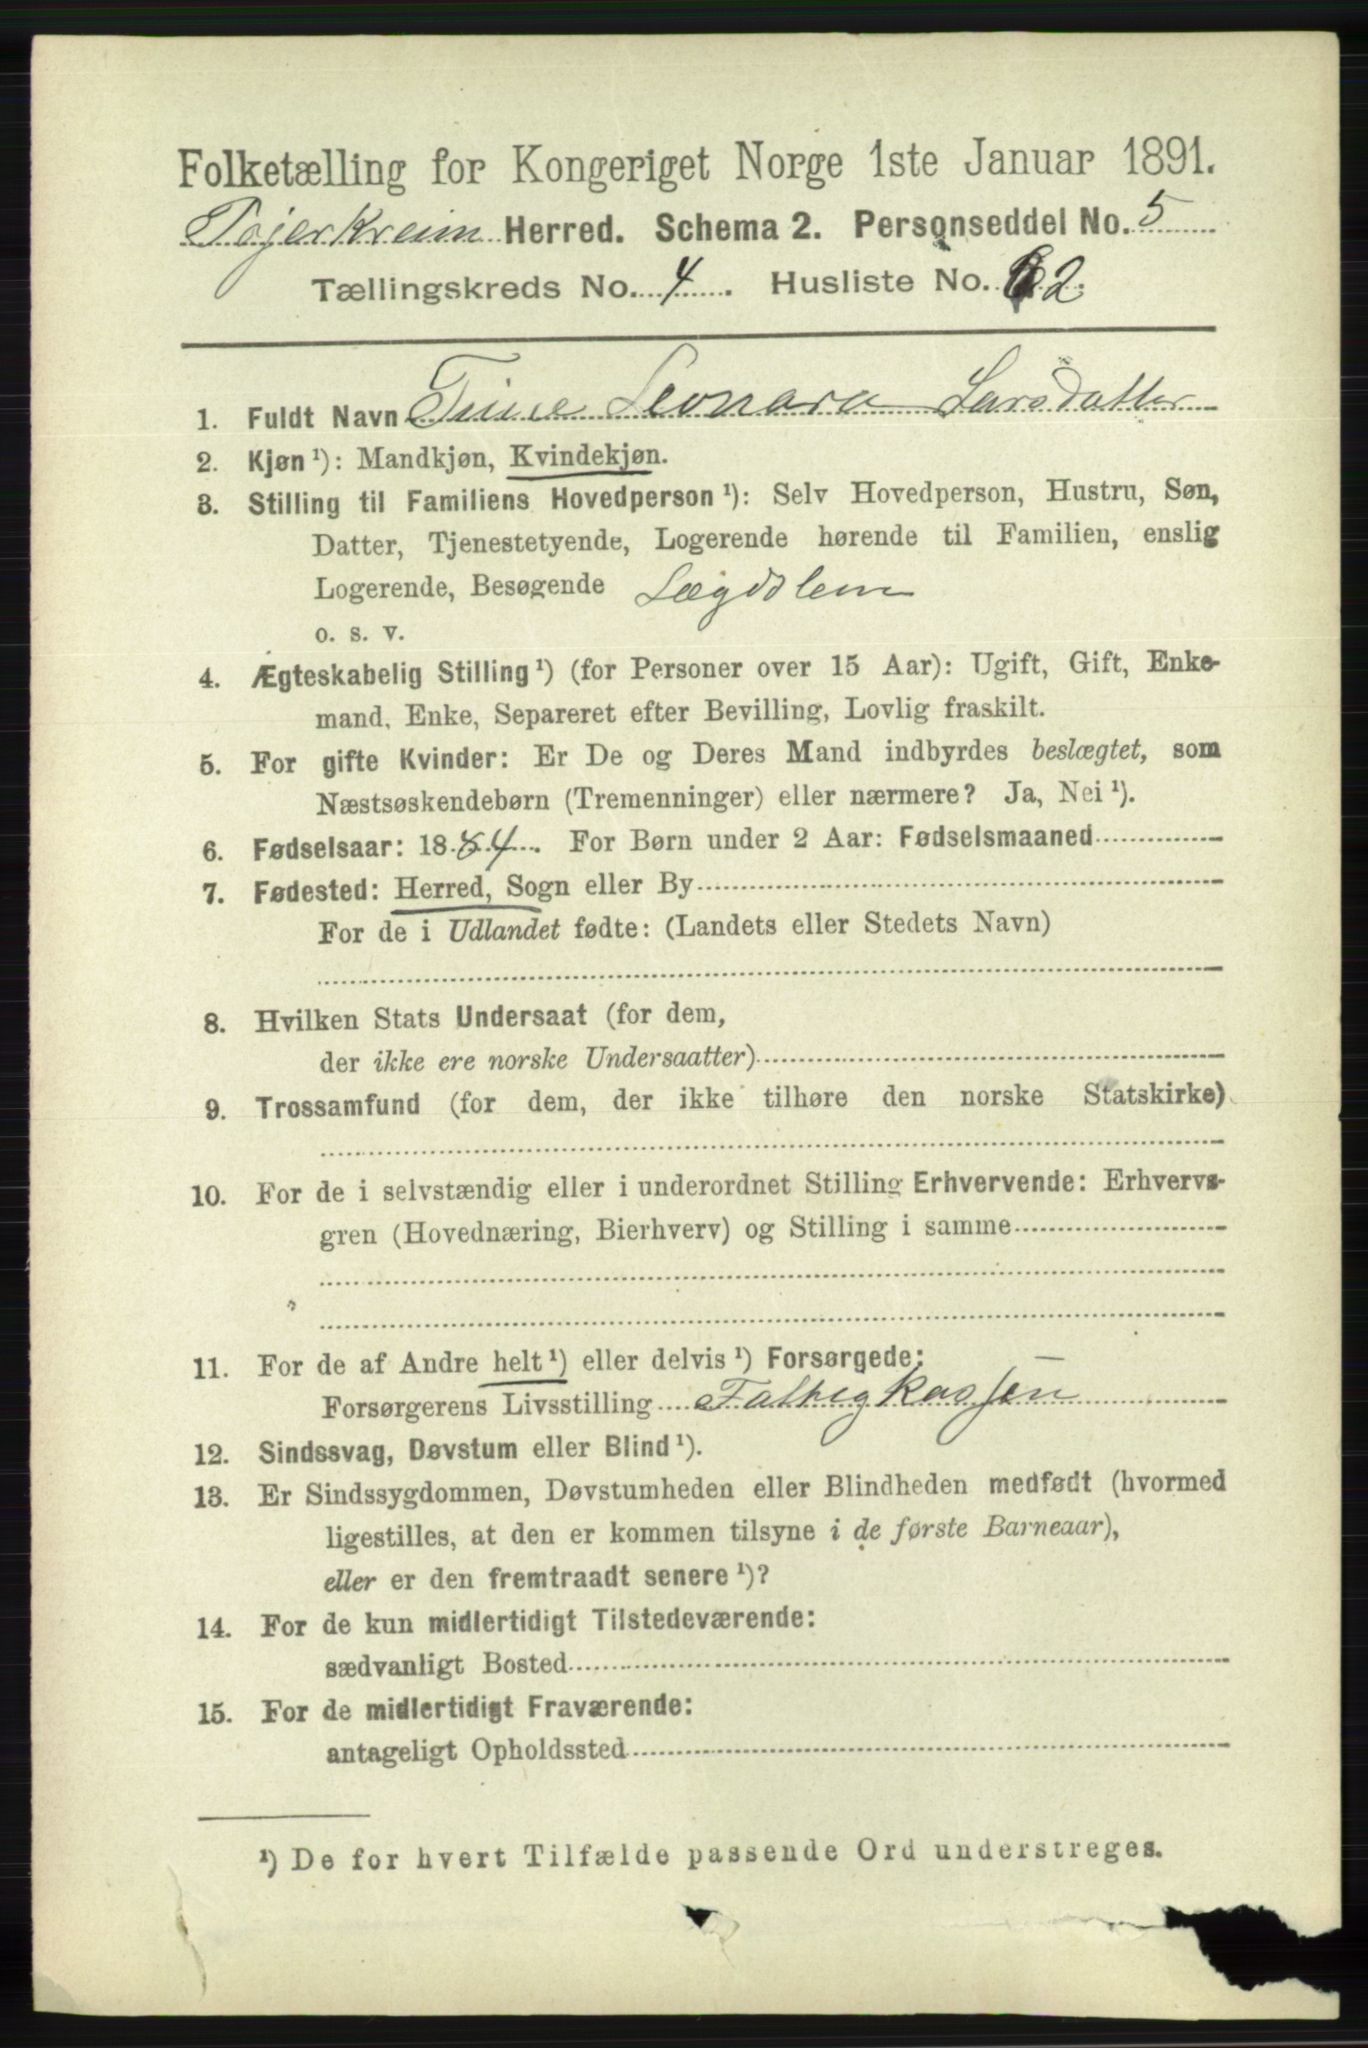 Folketælling for Kongeriget Norge 1ste Januar 1891.
Bjerkreim Herred. Schema 2. Personseddel No. 5
Tællingskreds No. 4. Husliste No. 2
1. Fuldt Navn Tine Leonara Larsdatter
2. Kjøn ¹): Mandkjøn, Kvindekjøn.
3. Stilling til Familiens Hovedperson ¹): Selv Hovedperson, Hustru, Søn,
Datter, Tjenestetyende, Logerende hørende til Familien, enslig
Logerende, Besøgende Lægdslem
o. s. v.
4. Ægteskabelig Stilling ¹) (for Personer over 15 Aar): Ugift, Gift, Enke-
mand, Enke, Separeret efter Bevilling, Lovlig fraskilt.
5. For gifte Kvinder: Er De og Deres Mand indbyrdes beslægtet, som
Næstsøskendebørn (Tremenninger) eller nærmere? Ja, Nei ¹).
6. Fødselsaar: 1884. For Børn under 2 Aar: Fødselsmaaned
7. Fødested: Herred, Sogn eller By
For de i Udlandet fødte: (Landets eller Stedets Navn)
8. Hvilken Stats Undersaat (for dem,
der ikke ere norske Undersaatter)
9. Trossamfund (for dem, der ikke tilhøre den norske Statskirke)
10. For de i selvstændig eller i underordnet Stilling Erhvervende: Erhvervs-
gren (Hovednæring, Bierhverv) og Stilling i samme
11. For de af Andre helt ¹) eller delvis ¹) Forsørgede:
Forsørgerens Livsstilling Fattigkassen
12. Sindssvag, Døvstum eller Blind ¹).
13. Er Sindssygdommen, Døvstumheden eller Blindheden medfødt (hvormed
ligestilles, at den er kommen tilsyne i de første Barneaar),
eller er den fremtraadt senere ¹)?
14. For de kun midlertidigt Tilstedeværende:
sædvanligt Bosted
15. For de midlertidigt Fraværende:
antageligt Opholdssted
¹) De for hvert Tilfælde passende Ord understreges.